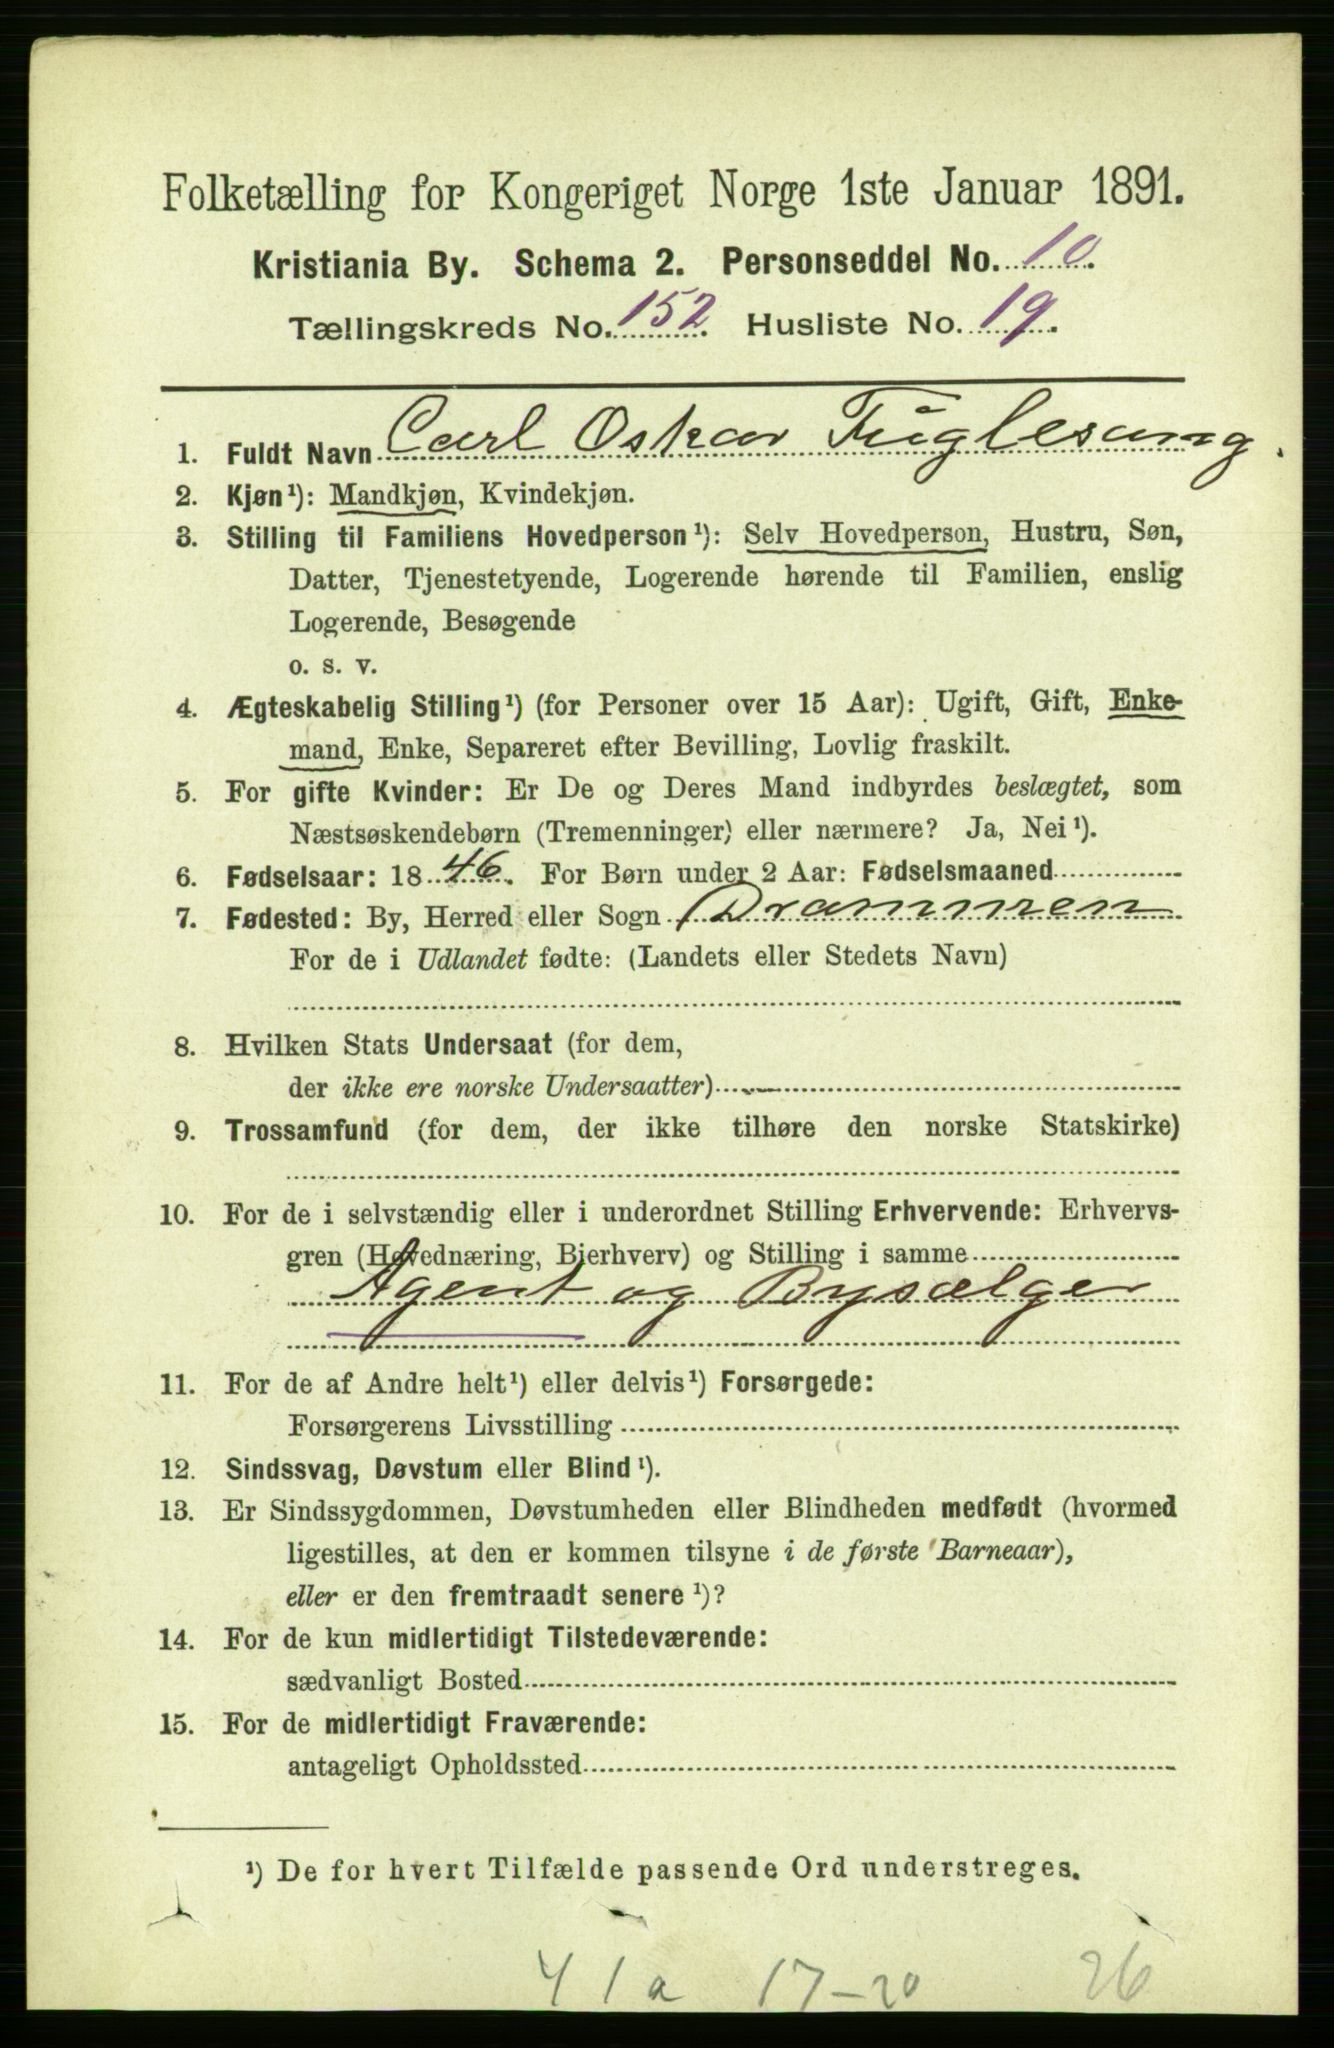 Folketælling for Kongeriget Norge 1ste Januar 1891.
Kristiania By. Schema 2. Personseddel No. 10.
Tællingskreds No. 152. Husliste No. 19.
1. Fuldt Navn Carl Oskar Fuglesang.
2. Kjøn¹): Mandkjøn, Kvindekjøn.
3. Stilling til Familiens Hovedperson¹): Selv Hovedperson, Hustru, Søn,
Datter, Tjenestetyende, Logerende hørende til Familien, enslig
Logerende, Besøgende
o. s. v.
4. Ægteskabelig Stilling¹) (for Personer over 15 Aar): Ugift, Gift, Enke-
mand, Enke, Separeret efter Bevilling, Lovlig fraskilt.
5. For gifte Kvinder: Er De og Deres Mand indbyrdes beslægtet, som
Næstsøskendebørn (Tremenninger) eller nærmere? Ja, Nei¹).
6. Fødselsaar: 1846. For Børn under 2 Aar: Fødselsmaaned
7. Fødested: By, Herred eller Sogn Drammen
For de i Udlandet fødte: (Landets eller Stedets Navn)
8. Hvilken Stats Undersaat (for dem,
der ikke ere norske Undersaatter)
9. Trossamfund (for dem, der ikke tilhøre den norske Statskirke)
10. For de i selvstændig eller i underordnet Stilling Erhvervende: Erhvervs-
gren (Hovednæring, Bierhverv) og Stilling i samme
Agent og Bysælger
11. For de af Andre helt¹) eller delvis¹) Forsørgede:
Forsørgerens Livsstilling
12. Sindssvag, Døvstum eller Blind¹).
13. Er Sindssygdommen, Døvstumheden eller Blindheden medfødt (hvormed
ligestilles, at den er kommen tilsyne i de første Barneaar),
eller er den fremtraadt senere¹)?
14. For de kun midlertidigt Tilstedeværende:
sædvanligt Bosted
15. For de midlertidigt Fraværende:
antageligt Opholdssted
¹) De for hvert Tilfælde passende Ord understreges.
41a 17-20 26